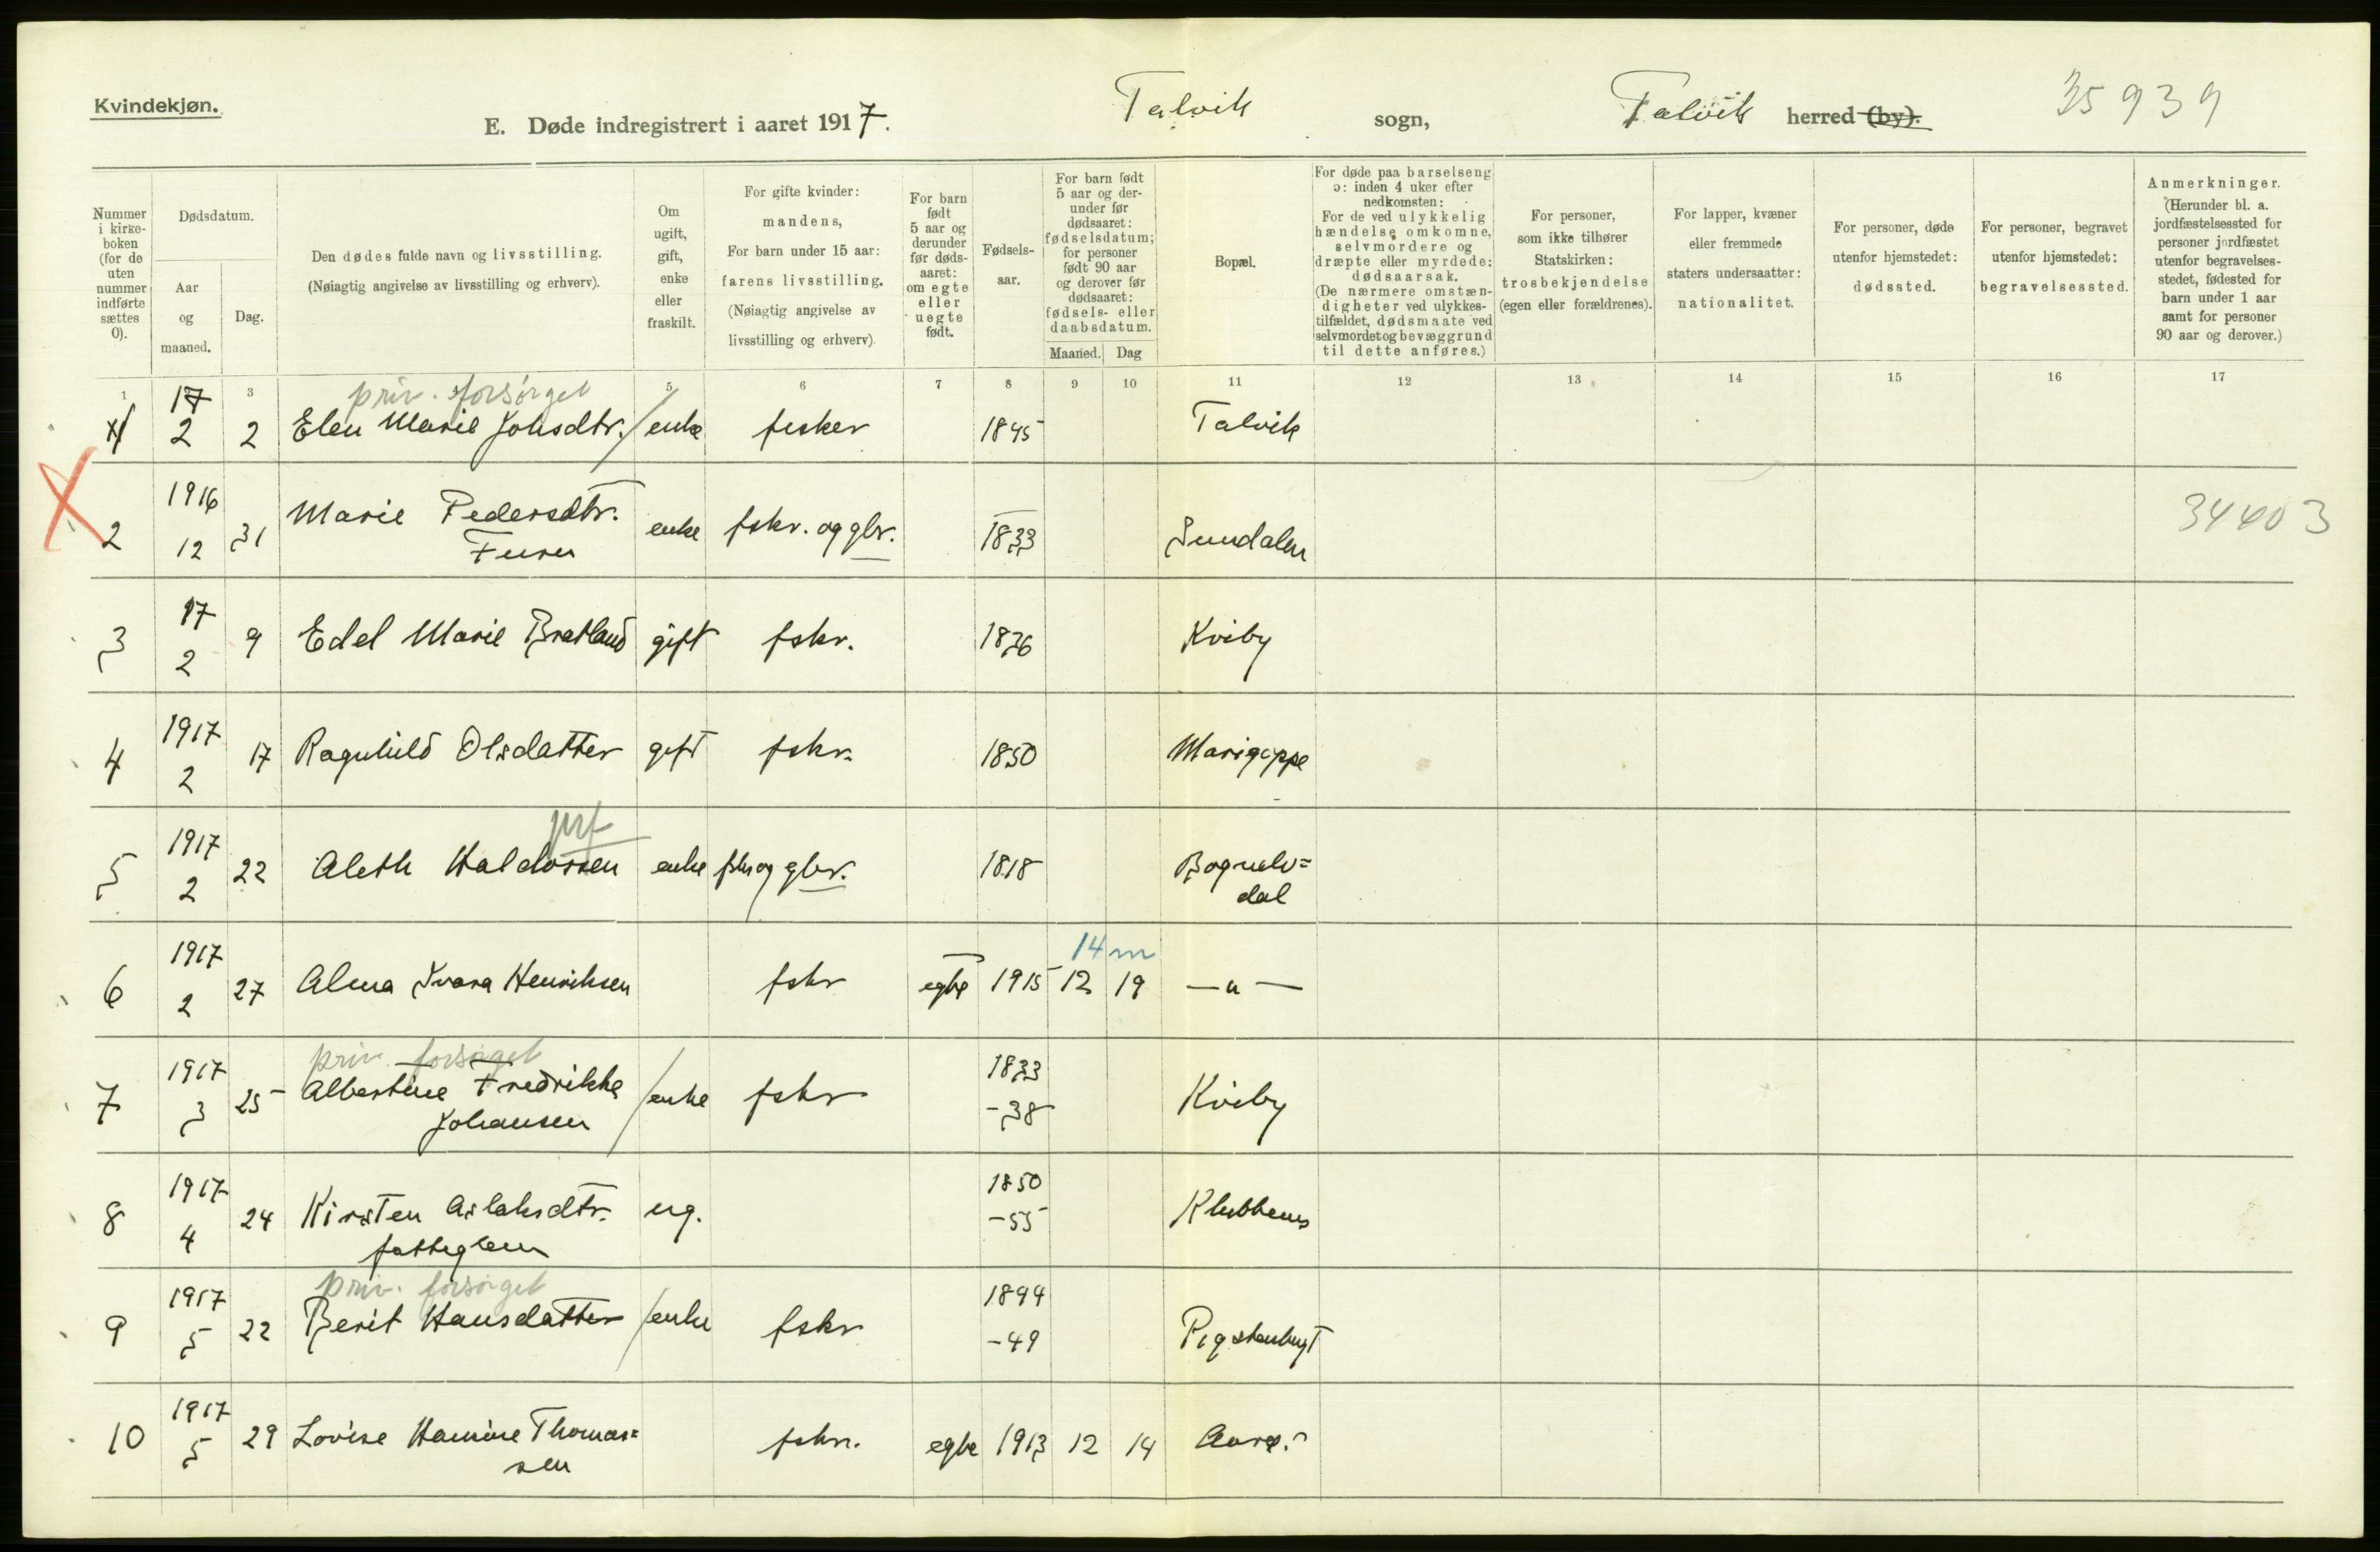 Kvindekjøn.
E. Døde indregistrert i aaret 1917. Talvik sogn, Talvik herred (by). 35939
Nummer i kirke-boken (for de uten nummer indførte sættes 0).
Dødsdatum.
Aar og maaned.
Dag.
Den dødes fulde navn og livsstilling.
(Nøiagtig angivelse av livsstilling og erhverv).
Om ugift, gift, enke eller fraskilt.
For gifte kvinder: mandens,
For barn under 15 aar: farens livsstilling.
(Nøiagtig angivelse av livsstilling og erhverv)
For barn født 5 aar og derunder før døds-aaret: om egte eller uegte født.
Fødsels-aar.
For barn født 5 aar og der-under før dødsaaret: fødselsdatum; for personer født 90 aar og derover før dødsaaret: fødsels- eller daabsdatum.
Maaned. Dag
Bopæl.
For døde paa barselseng ɔ: inden 4 uker efter nedkomsten:
For de ved ulykkelig hændelse omkomne, selvmordere og dræpte eller myrdede: dødsaarsak.
(De nærmere omstæn-digheter ved ulykkes-tilfældet, dødsmaate ved selvmordet og bevæggrund til dette anføres.)
For personer, som ikke tilhører Statskirken: trosbekjendelse (egen eller forældrenes).
For lapper, kvæner eller fremmede staters undersaatter: nationalitet.
For personer, døde utenfor hjemstedet: dødssted.
For personer, begravet utenfor hjemstedet: begravelsessted.
Anmerkninger.
(Herunder bl. a. jordfæstelsessted for personer jordfæstet utenfor begravelses-stedet, fødested for barn under 1 aar samt for personer 90 aar og derover.)
1 3 5 6 7 8 9 10 11 12 13 14 15 16 17
priv. forsørget
17 2 2 Elen Marie Johsdtr. enke fisker 1845 Talvik
2 1916 12 31 Marie Pedersdtr. enke fskr. og gbr. 1833 34403
3 17 2 9 Edel Marie Bratland gift fskr. 1876 Kviby
4 1917 2 17 Ragnhild Olsdatter gift fskr. 1850
prf
5 1917 2 22 Aleth Haldorsen enke fskr og gbr. 1818 Bognelv=
dal
14 m
6 1917 2 27 Alma Ivara Henriksen fskr egte 1915 12 19 — " —
priv. forsørget
7 1917 3 25 Albertine Fredrikke enke fskr 1833 Kviby
Johansen -38
8 1917 4 24 Kirsten Aslaksdtr. ug. 1850 -55 Klubbenes
fattiglem
priv. forsørget
9 1917 5 22 Berit Hansdatter enke fskr 1844 -49 Pigstenbugt
10 1917 5 29 Lovise Thomas= fskr. egte 1913 12 14
sen